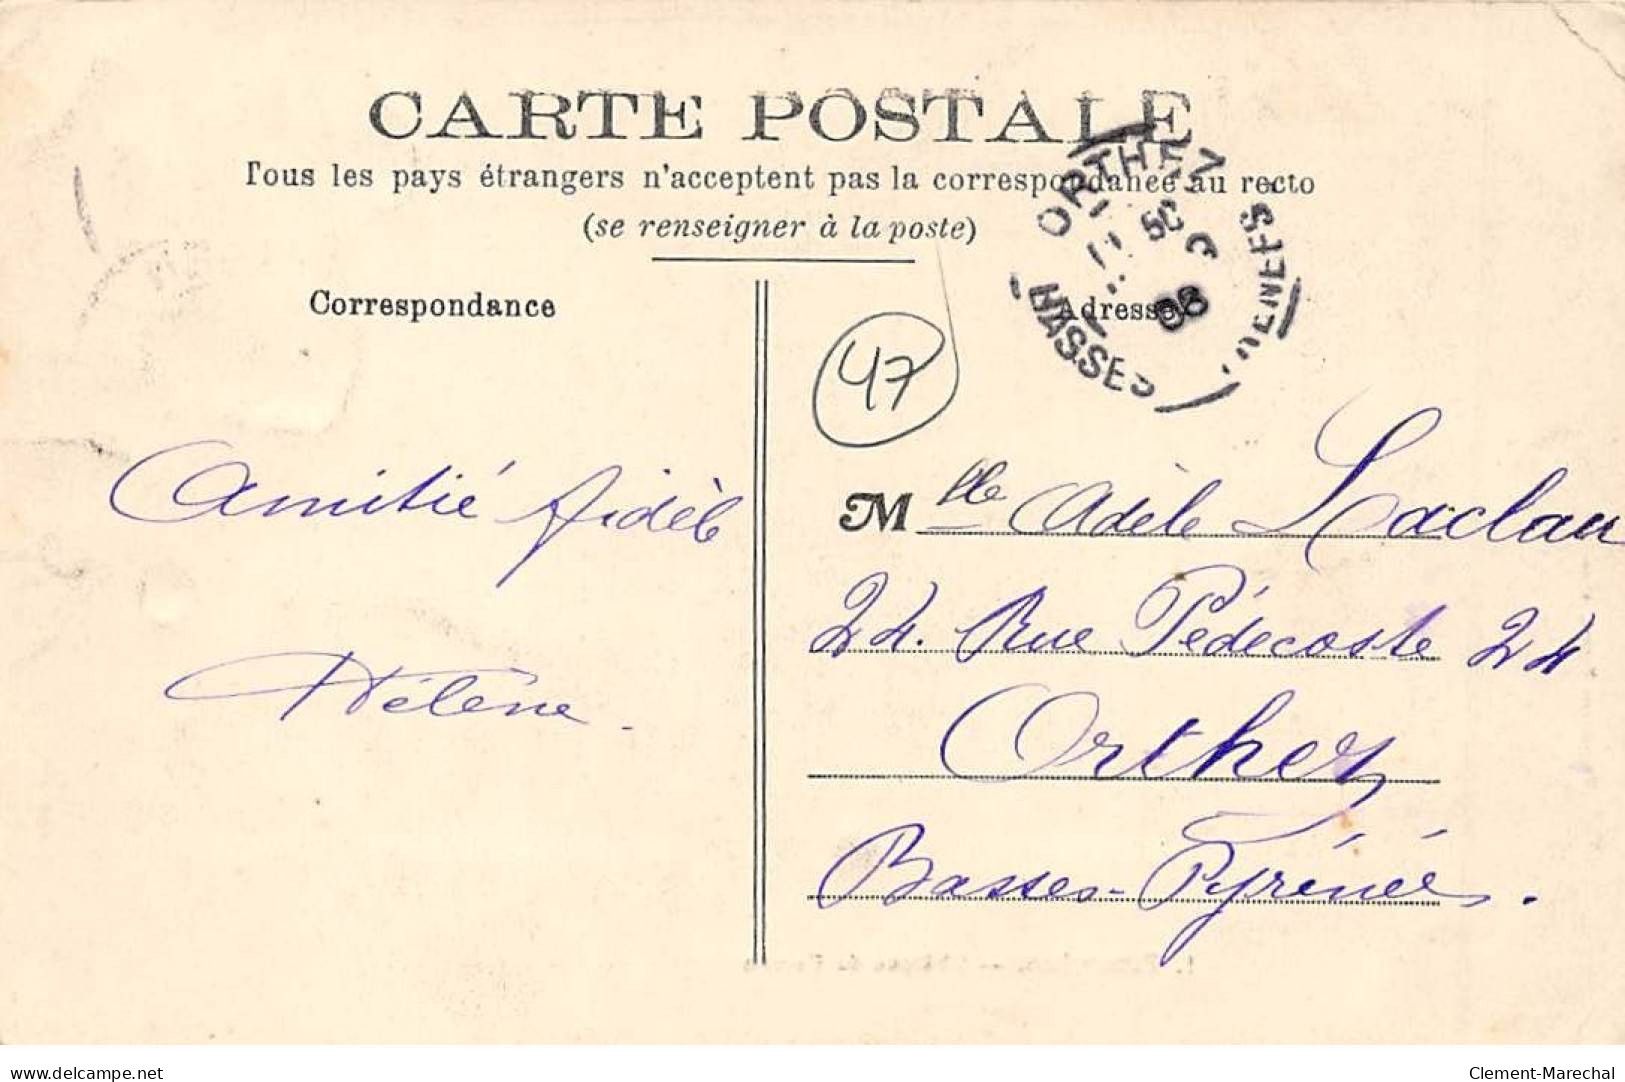 CARTE POSTALE
Tous les pays étrangers n'acceptent pas la correspondance au recto
(se renseigner à la poste)
ORTHEZ
BASSES PYRENEES
Correspondance
Adresse
47
Amitié fidèle
Hélène.
Mlle Adèle Laclau
24. Rue Pédecoste 24
Orthez
Basses-Pyrénées.
delcampe.net
Clement-Marechal